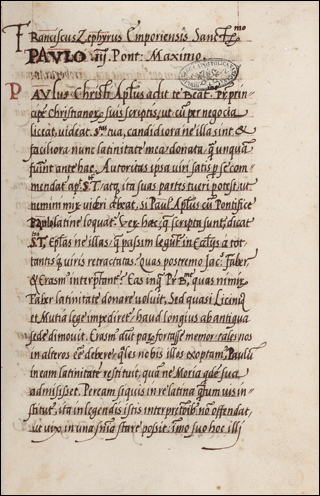 Franciscus Zephyrus Emporiensis Sanct.mo
PAVLO iij. Pont. Maximo.
PAVlus Christi Apl'us adit te Beat. Pr. prin-
cipē Christianor. suis scriptis, ut cū per negocia
liceat, uideat. S. tua, candidiora ne illa sint &
faciliora nunc latinitate mea donata, q̄ unquā
fuerint ante hac. Autoritas ipsa uiri satis p se com-
mendat ap. S.T. atq, ita suas partes tueri potest, ut
nemini mir. uideri debeat, si Paul. Aplus cū Pontifice
Paulo latine loquat. Verū haec, q̄ scripta sunt, dicat
S.T. Epl'as ne illas, q̄ passim legunt in Eccl'ijs a tot
tantisq uiris retractatas? Quas postremo Jac. Faber,
& Erasm. interptant? Eas inq Pr. B. quas nimir.
Faber latinitate donare uoluit, Sed quasi Licinia
et Mutia lege impediret, haud longius ab antiqua
sede dimouit. Erasm. aut par, fortasse memor tales nos
in alteros eē debere, q̄les nobis illos exoptam, Pauli
in eam latinitatē restituit, quā ne Moria q̄de sua
admisisset. Peream siquis in re latina q̄tum uis in-
stitut, ita in legendis istis interpretib. nō offendat,
ut uix in una sn̄ia stare possit. imo suo hoc illi